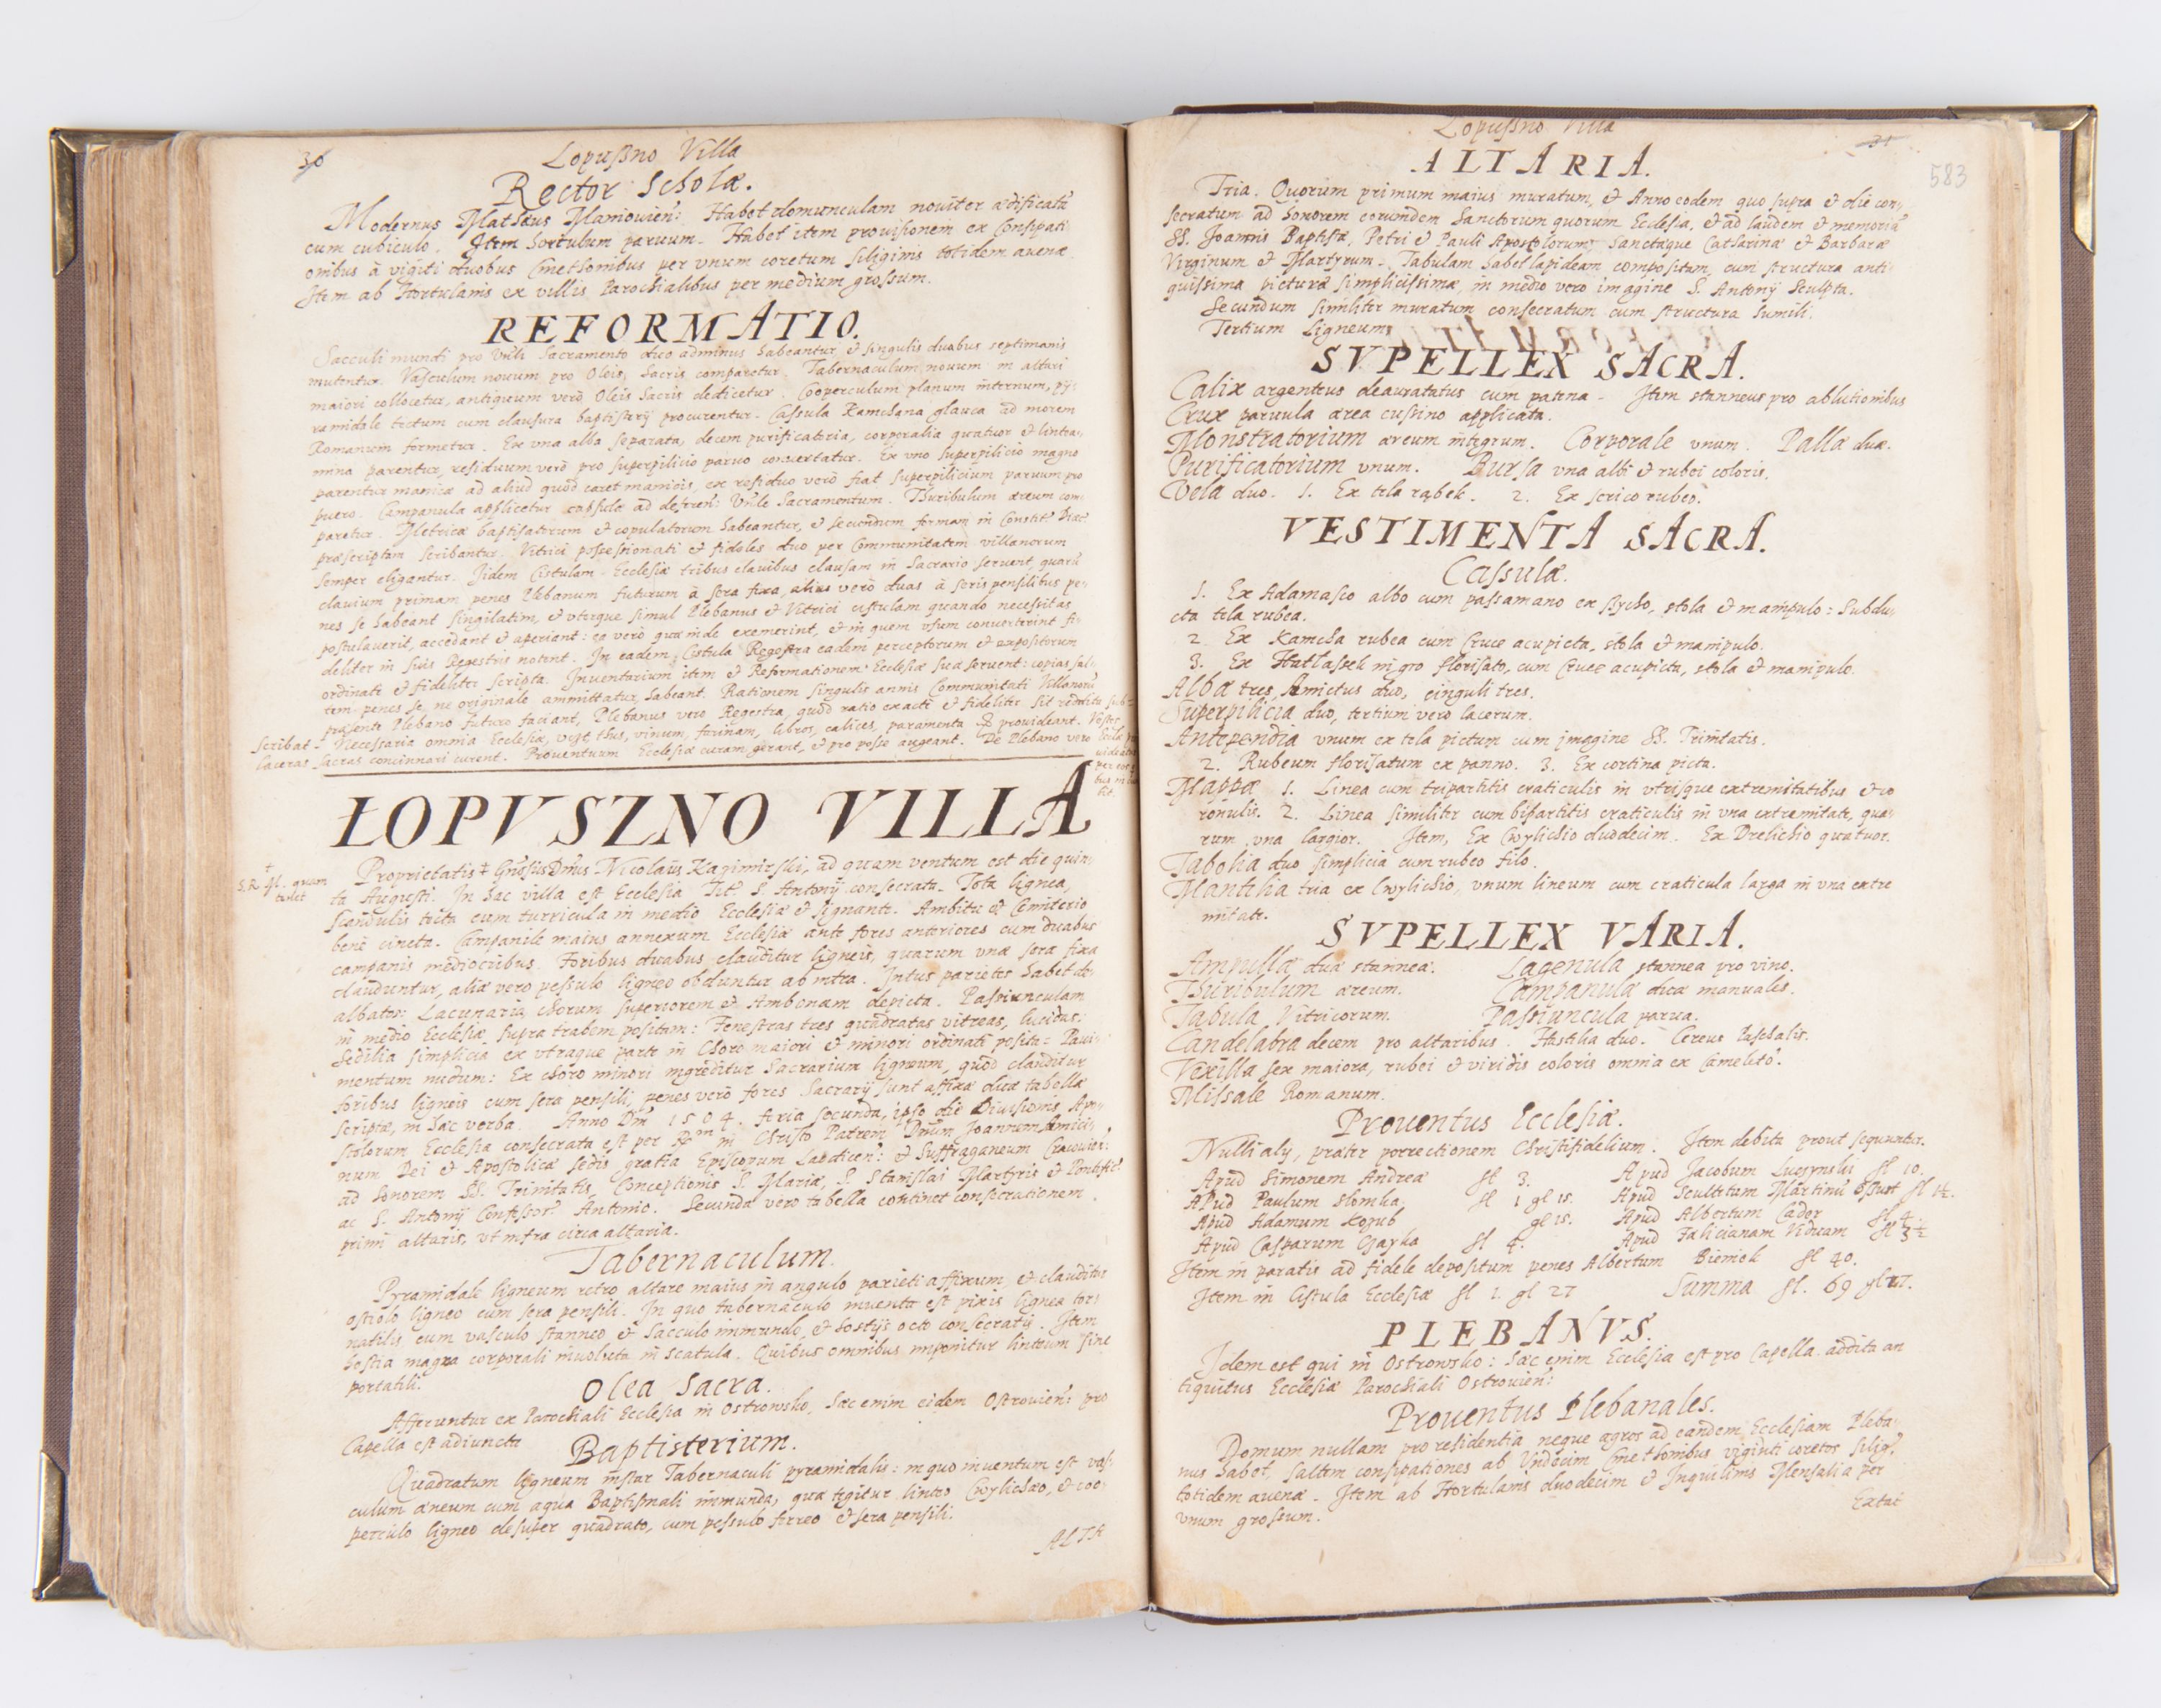 30
Lopußno Villa
Rector Scholæ.
Modernus Matthæus Maniovien: Habet domunculam noviter ædificatā
cum cubiculo. Item hortulum parvum. Habet item provisionem ex Consipati
onibus à viginti duobus Cmethonibus per unum coretum siliginis totidem avenæ
Item ab Hortulanis ex villis Parochialibus per medium grossum.
REFORMATIO.
Sacculi mundi pro Vnli Sacramento duo adminus habeantur, & singulis duabus septimanis
mutentur. Vasculum novum pro Oleis Sacris comparetur. Tabernaculum novum in altari
maiori collocetur, antiquum verò Oleis Sacris dedicetur. Cooperculum planum internum, py-
ramidale tectum cum clausura baptisterij procurentur. Casula Kamchana glauca ad morem
Romanum formetur. Ex una alba separata, decem purificatoria, corporalia quatuor & lintea-
mina parentur, residuum verò pro superpilicio parvo convertatur. Ex uno superpilicio magno
parentur manicæ ad aliud quod caret manicis, ex residuo verò fiat superpilicium parvum pro
puero. Campanula applicetur capsulæ ad deferen: Vnle Sacramentum. Thuribulum æreum com-
paretur. Metricæ baptisatorum & copulatorum habeantur, & secundum formam in Constit:
præscriptam scribantur. Vitrici possessionati & fideles duo per Communitatem villanorum
semper eligantur. Iidem Cistulam Ecclesiæ tribus clavibus clausam in Sacrario servent, quarū
clavium primam penes Plebanum futurum à sera fixa, alias verò duas à seris pensilibus pe-
nes se habeant singillatim, & uterque simul Plebanus & Vitrici cistulam quando necessitas
postulaverit, accedant & aperiant: ea verò quæ inde exemerint, & in quem usum converterint fi-
deliter in suis Regestris notent. In eadem Cistula Regestra eadem perceptorum & expositorum
ordinate & fideliter scripta. Inventarium item & Reformationem Ecclesiæ suæ servent: copias sal-
tem penes se, ne originale ammittatur, habeant. Rationem singulis annis Communitati Villanorū
præsente Plebano futuro faciant, Plebanus vero Regestra, quod ratio exacte & fideliter sit reddita sub-
scribat. Necessaria omnia Ecclesiæ, ut thus, vinum, farinam, libros, calices, paramenta provideant. Vestes
laceras sacras concinnari curent. Proventuum Ecclesiæ curam gerant, & pro posse augeant. De Plebano vero
ŁOPVSZNO VILLA
Proprietatis Gnosus Dnus Nicolaus Kazimirski, ad quam ventum est die quin-
S.R. M. quam
tenet
ta Augusti. In hac villa est Ecclesia Tit. S. Antonij consecrata. Tota lignea,
scandulis tecta cum turricula in medio Ecclesiæ & signante. Ambitu & Cemiterio
bene cincta. Campanile maius annexum Ecclesiæ ante fores anteriores cum duabus
campanis mediocribus. Foribus duabus clauditur ligneis, quarum unæ sera fixa
clauduntur, aliæ vero pessulo ligneo obduntur ab intra. Intus parietes habet de-
albatos: Lacunaria chorum superiorem & Ambonam depicta. Passiunculam
in medio Ecclesiæ supra trabem positam: Fenestras tres quadratas vitreas, lucidas:
Sedilia simplicia ex utraque parte in Choro maiori & minori ordinatè posita: Pavi-
mentum nudum: Ex choro minori ingreditur Sacrarium ligneum, quod clauditur
foribus ligneis cum sera pensili, penes verò fores Sacrarij sunt affixæ duæ tabellæ
scriptæ, in hæc verba. Anno Dni 1504. feria secunda, ipso die Divisionis Apo-
stolorum Ecclesia consecrata est per Rm in Christo Patrem Dnum Joannem Amici-
num Dei & Apostolicæ sedis gratia Episcopum Laodicen: & Suffraganeum Cracovien:
ad honorem SS. Trinitatis, Conceptionis S. Mariæ, S. Stanislai Martyris & Pontific:
ac S. Antonij Confessor: Antonio. Secunda vero tabella continet consecrationem
primi altaris, ut infra circa altaria.
Tabernaculum.
Pyramidale ligneum retro altare maius in angulo parieti affixum & clauditur
ostiolo ligneo cum sera pensili. In quo tabernaculo inventa est pixis lignea tor-
natilis, cum vasculo stanneo & sacculo immundo, & hostijs octo consecratis. Item
hostia magna corporali involuta in scatula. Quibus omnibus imponitur linteum sine
portatili.
Olea Sacra.
Afferuntur ex Parochiali Ecclesia in Ostrowsko, hæc enim eidem Ostrovien: pro
Capella est adiuncta
Baptisterium.
Quadratum ligneum instar Tabernaculi pyramidalis: in quo inventum est vas-
culum æneum cum aqua Baptismali immunda, quæ tegitur linteo Cwylichao, & coo-
perculo ligneo desuper quadrato, cum pessulo ferreo & sera pensili.
ALTA
Lopußno Villa
31
583
ALTARIA.
Tria. Quorum primum maius muratum, & Anno eodem quo supra & die con-
secratum ad honorem eorumdem Sanctorum quorum Ecclesia, & ad laudem & memoriā
SS. Joannis Baptistæ, Petri & Pauli Apostolorum, Sanctæque Catharinæ & Barbaræ
Virginum & Martyrum. Tabulam habet lapideam compositam, cum structura anti-
quissima picturæ simplicissimæ, in medio vero imagine S. Antonij Sculpta.
Secundum similiter muratum consecratum cum structura simili.
Tertium Ligneum
SVPELLEX SACRA.
Calix argenteus deauratatus cum patena. Item stanneus pro ablutionibus
Crux parvula ærea cussino applicata.
Monstratorium æreum integrum. Corporale unum. Palla duæ.
Purificatorium unum. Bursa una albi & rubei coloris.
Vela duo. 1. Ex tela rąbek. 2. Ex serico rubeo.
VESTIMENTA SACRA.
Casulæ.
1. Ex Adamasco albo cum passamano ex stycho, stola & manipulo: Subdu-
cta tela rubea.
2. Ex Kamcha rubea cum Cruce acupicta, stola & manipulo.
3. Ex Hatlassek nigro florisato, cum Cruce acupicta, stola & manipulo.
Albæ tres, Amictus duo, cinguli tres.
Superpilicia duo, tertium vero lacerum.
Antipendia unum ex tela pictum cum imagine SS. Trinitatis.
2. Rubeum florisatum ex panno. 3. Ex cortina picta.
Mappæ 1. Linea cum tripartitis craticulis in utrisque extremitatibus & co
ronulis. 2. Linea similiter cum bipartitis craticulis in una extremitate, qua-
rum una largior. Item, Ex Cwylichio duodecim. Ex Drelichio quatuor.
Tabolia duo simplicia cum rubeo filo.
Mantilia tria ex Cwylichio, unum lineum cum craticula larga in una extre
mitate.
SVPELLEX VARIA.
Ampullæ duæ stanneæ. Lagenula stannea pro vino.
Thuribulum æreum. Campanulæ duæ manuales.
Tabula Vitricorum. Passiuncula parva.
Candelabra decem pro altaribus. Hastilia duo. Cereus Paschalis.
Vexilla sex maiora, rubei & viridis coloris omnia ex Cameleto.
Missale Romanum.
Proventus Ecclesiæ.
Nulli alij, præter porrectionem Christifidelium. Item debita prout sequuntur.
Apud Simonem Andreæ fl 3. Apud Jacobum Luczynski fl 10.
Apud Paulum Slomka fl 1 gl 15. Apud Scultetum Martinū fl 1½.
Apud Adamum Kopub gl 15. Apud Albertum Cader fl 4
Apud Casparum Czayka fl 4. Apud Falicianam Viduam fl 3½
Item in paratis ad fidele depositum penes Albertum Biemek fl 40.
Item in Cistula Ecclesiæ fl 1. gl 27 Summa fl. 69 gl 27.
PLEBANVS.
Idem est qui in Ostrowsko: hæc enim Ecclesia est pro Capella addita an
tiquitus Ecclesiæ Parochiali Ostrovien:
Proventus Plebanales.
Domum nullam pro residentia neque agros ad eandem Ecclesiam Pleba-
nus habet, saltem consipationes ab Vndecim Cmethonibus viginti coretos silig:
totidem avenæ. Item ab Hortulanis duodecim & Inquilinis Mensalia per
unum grossum.
Extat